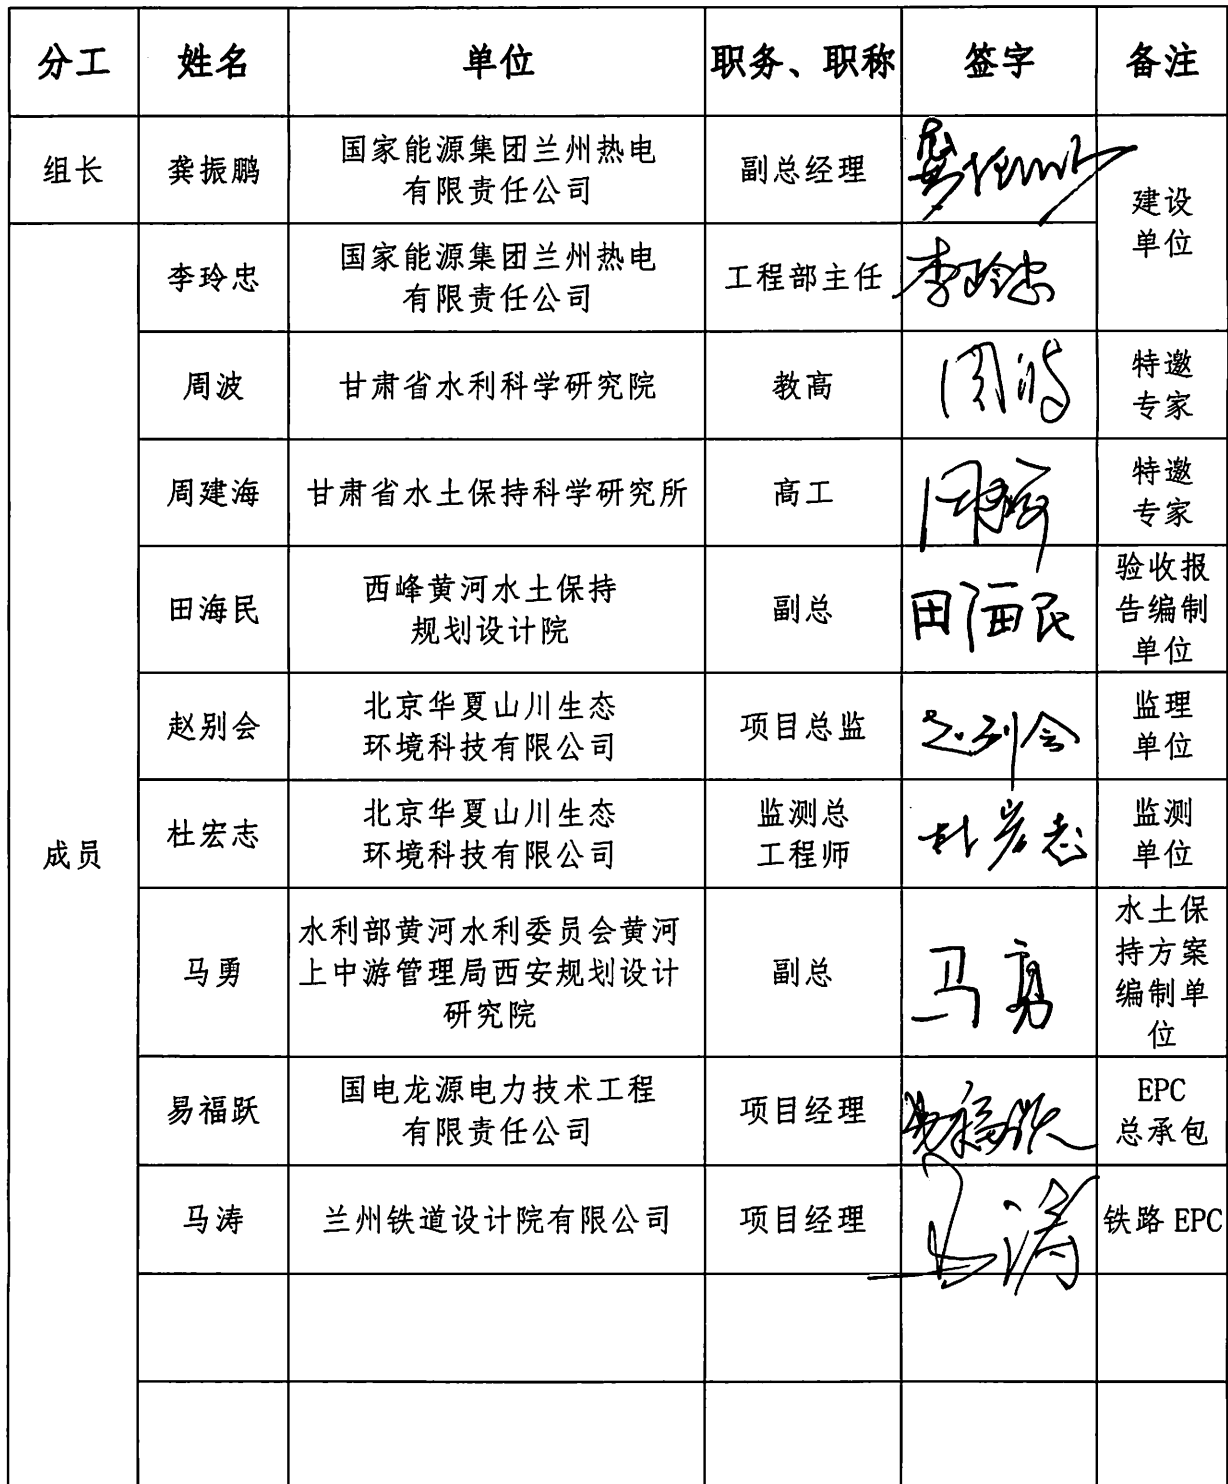 分工 姓名 单位 职务、职称 签字 备注
组长 龚振鹏 国家能源集团兰州热电
有限责任公司 副总经理 建设
单位
成员 李玲忠 国家能源集团兰州热电
有限责任公司 工程部主任 李玲忠
周波 甘肃省水利科学研究院 教高 周波 特邀
专家
周建海 甘肃省水土保持科学研究所 高工 特邀
专家
田海民 西峰黄河水土保持
规划设计院 副总 田海民 验收报
告编制
单位
赵别会 北京华夏山川生态
环境科技有限公司 项目总监 赵别会 监理
单位
杜宏志 北京华夏山川生态
环境科技有限公司 监测总
工程师 杜宏志 监测
单位
马勇 水利部黄河水利委员会黄河
上中游管理局西安规划设计
研究院 副总 马勇 水土保
持方案
编制单
位
易福跃 国电龙源电力技术工程
有限责任公司 项目经理 易福跃 EPC
总承包
马涛 兰州铁道设计院有限公司 项目经理 马涛 铁路 EPC